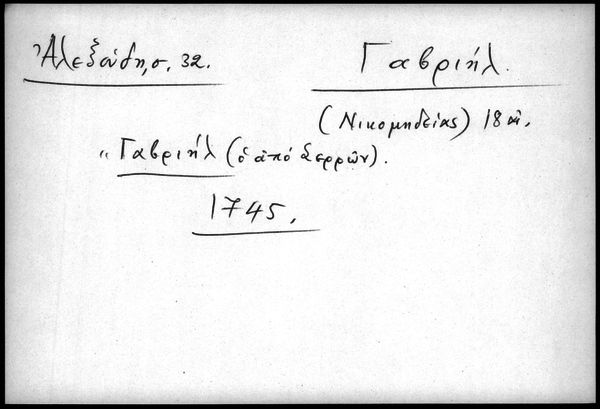 Ἀλεξούδη, σ. 32.
Γαβριήλ.
(Νικομηδείας) 18 αἰ.
"Γαβριήλ (ὁ ἀπό Σερρῶν).
1745.